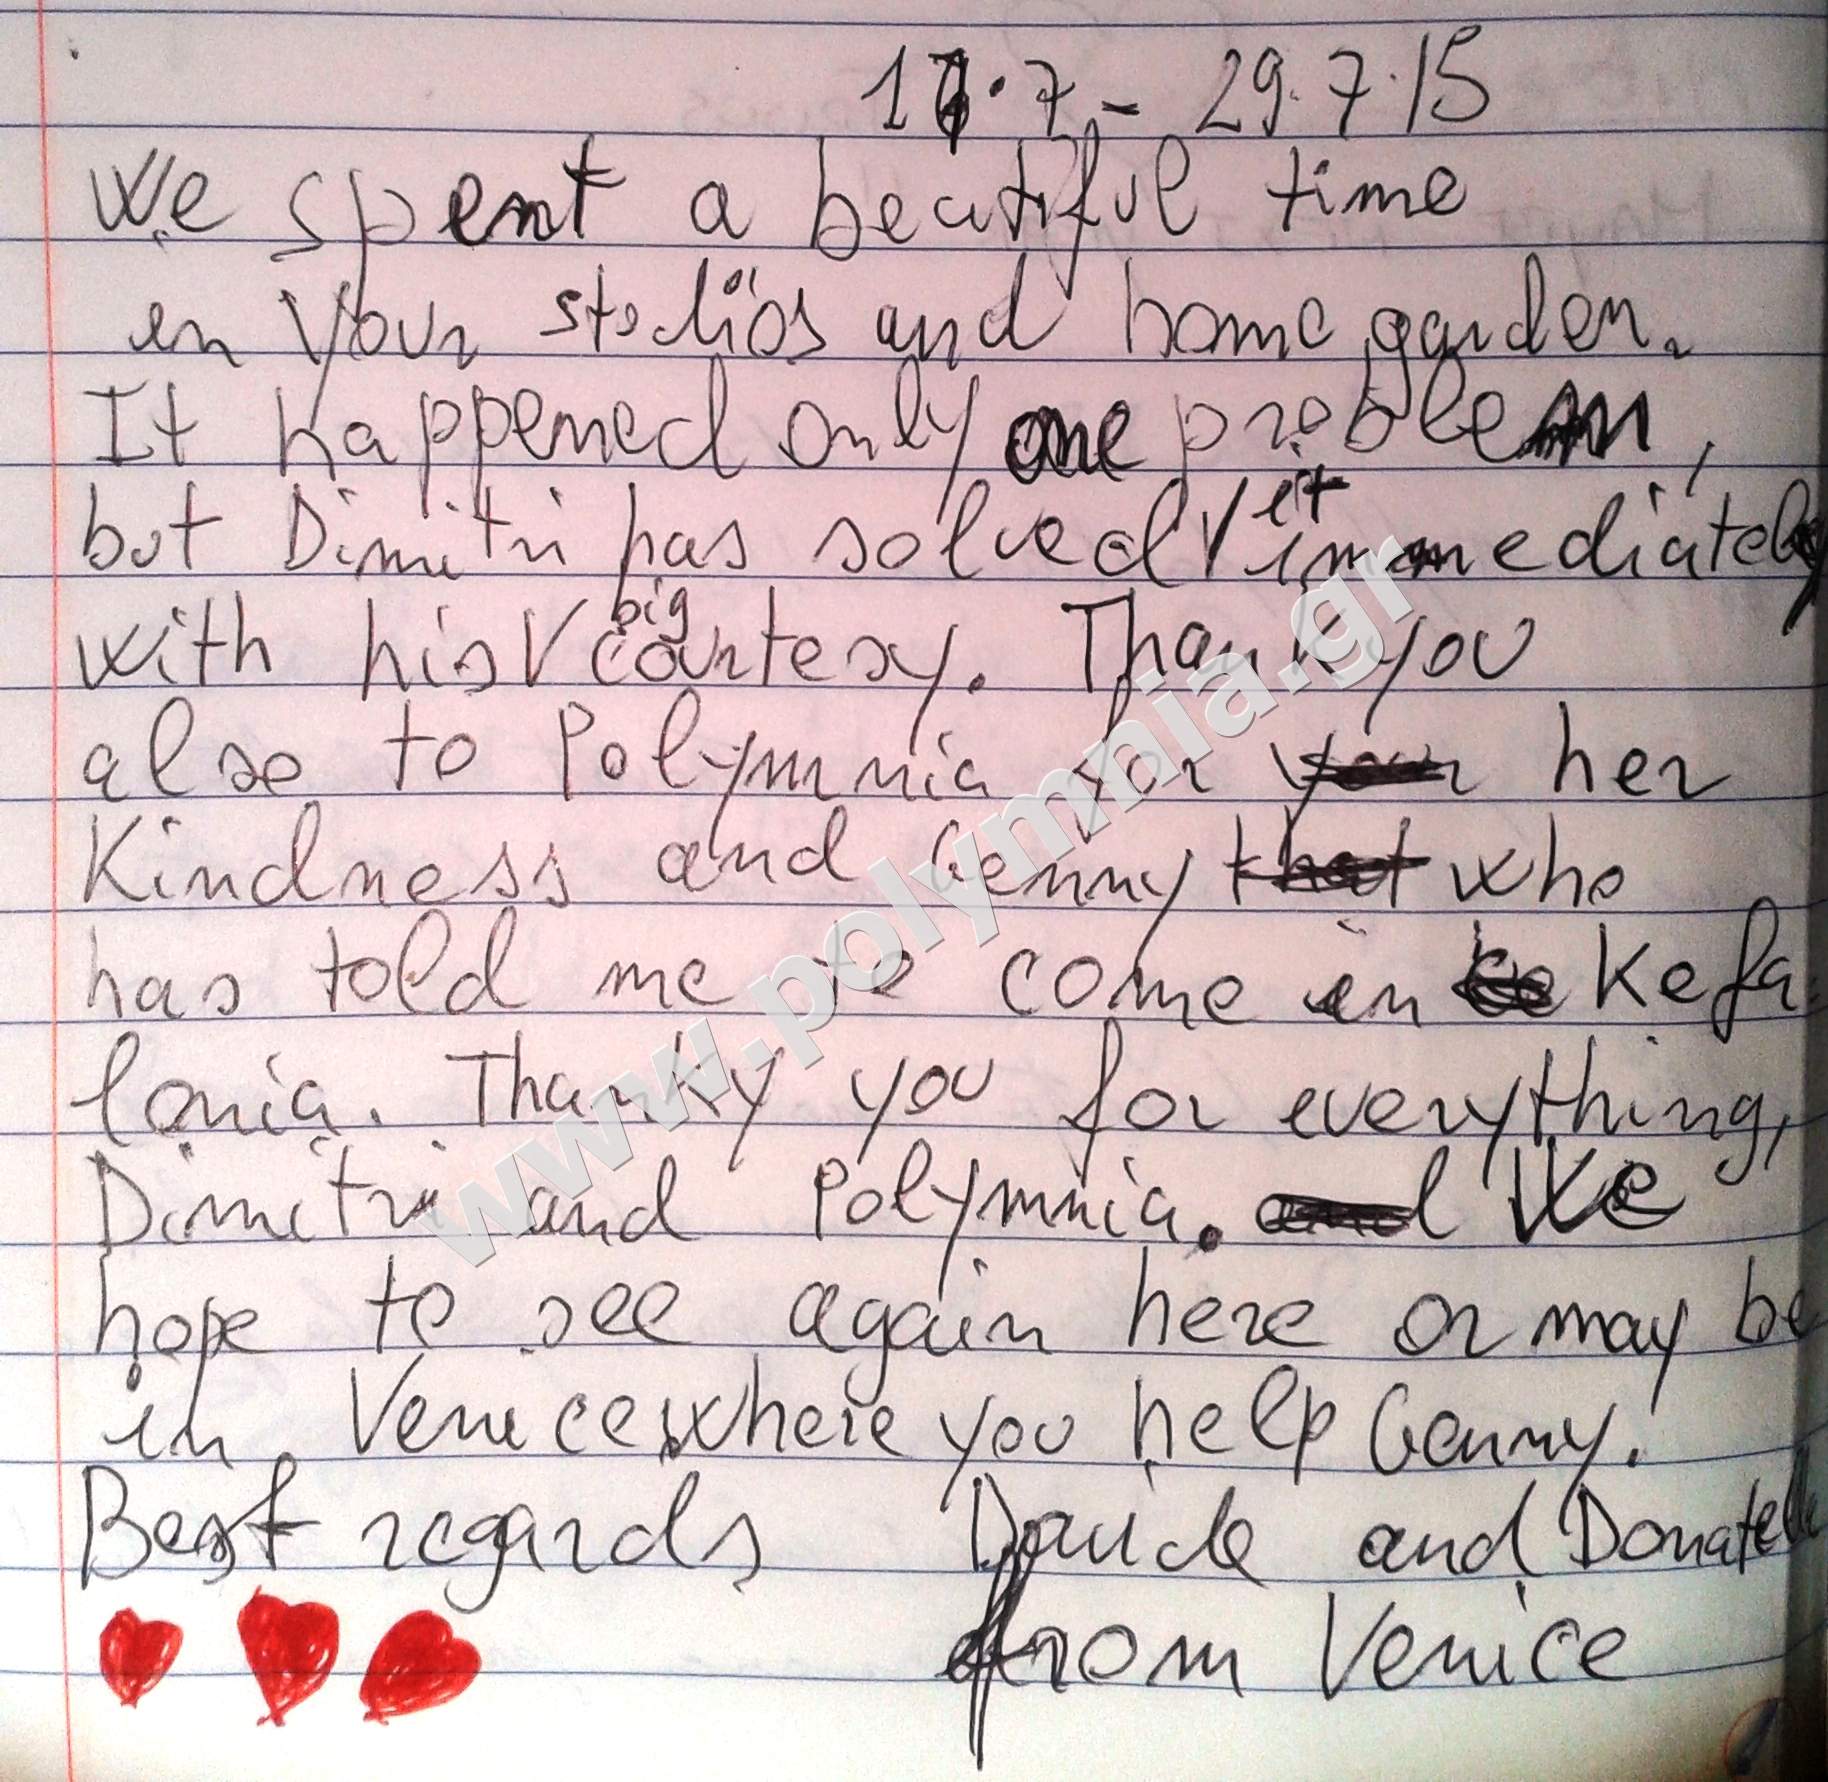 17.7 - 29.7.15
We spent a beatiful time
in your stodios and home garden.
It happened only one problem,
but Dimitri has solved it immediately
with his big courtesy. Thank you
also to Polymnia for your her
Kindness and Genny that who
has told me to come in ke Kefa
lonia. Thanky you for everything,
Dimitri and Polymnia. and We
hope to see again here or may be
in Venice where you help Genny.
Best regards Davide and Donatella
from Venice
www.polymnia.gr